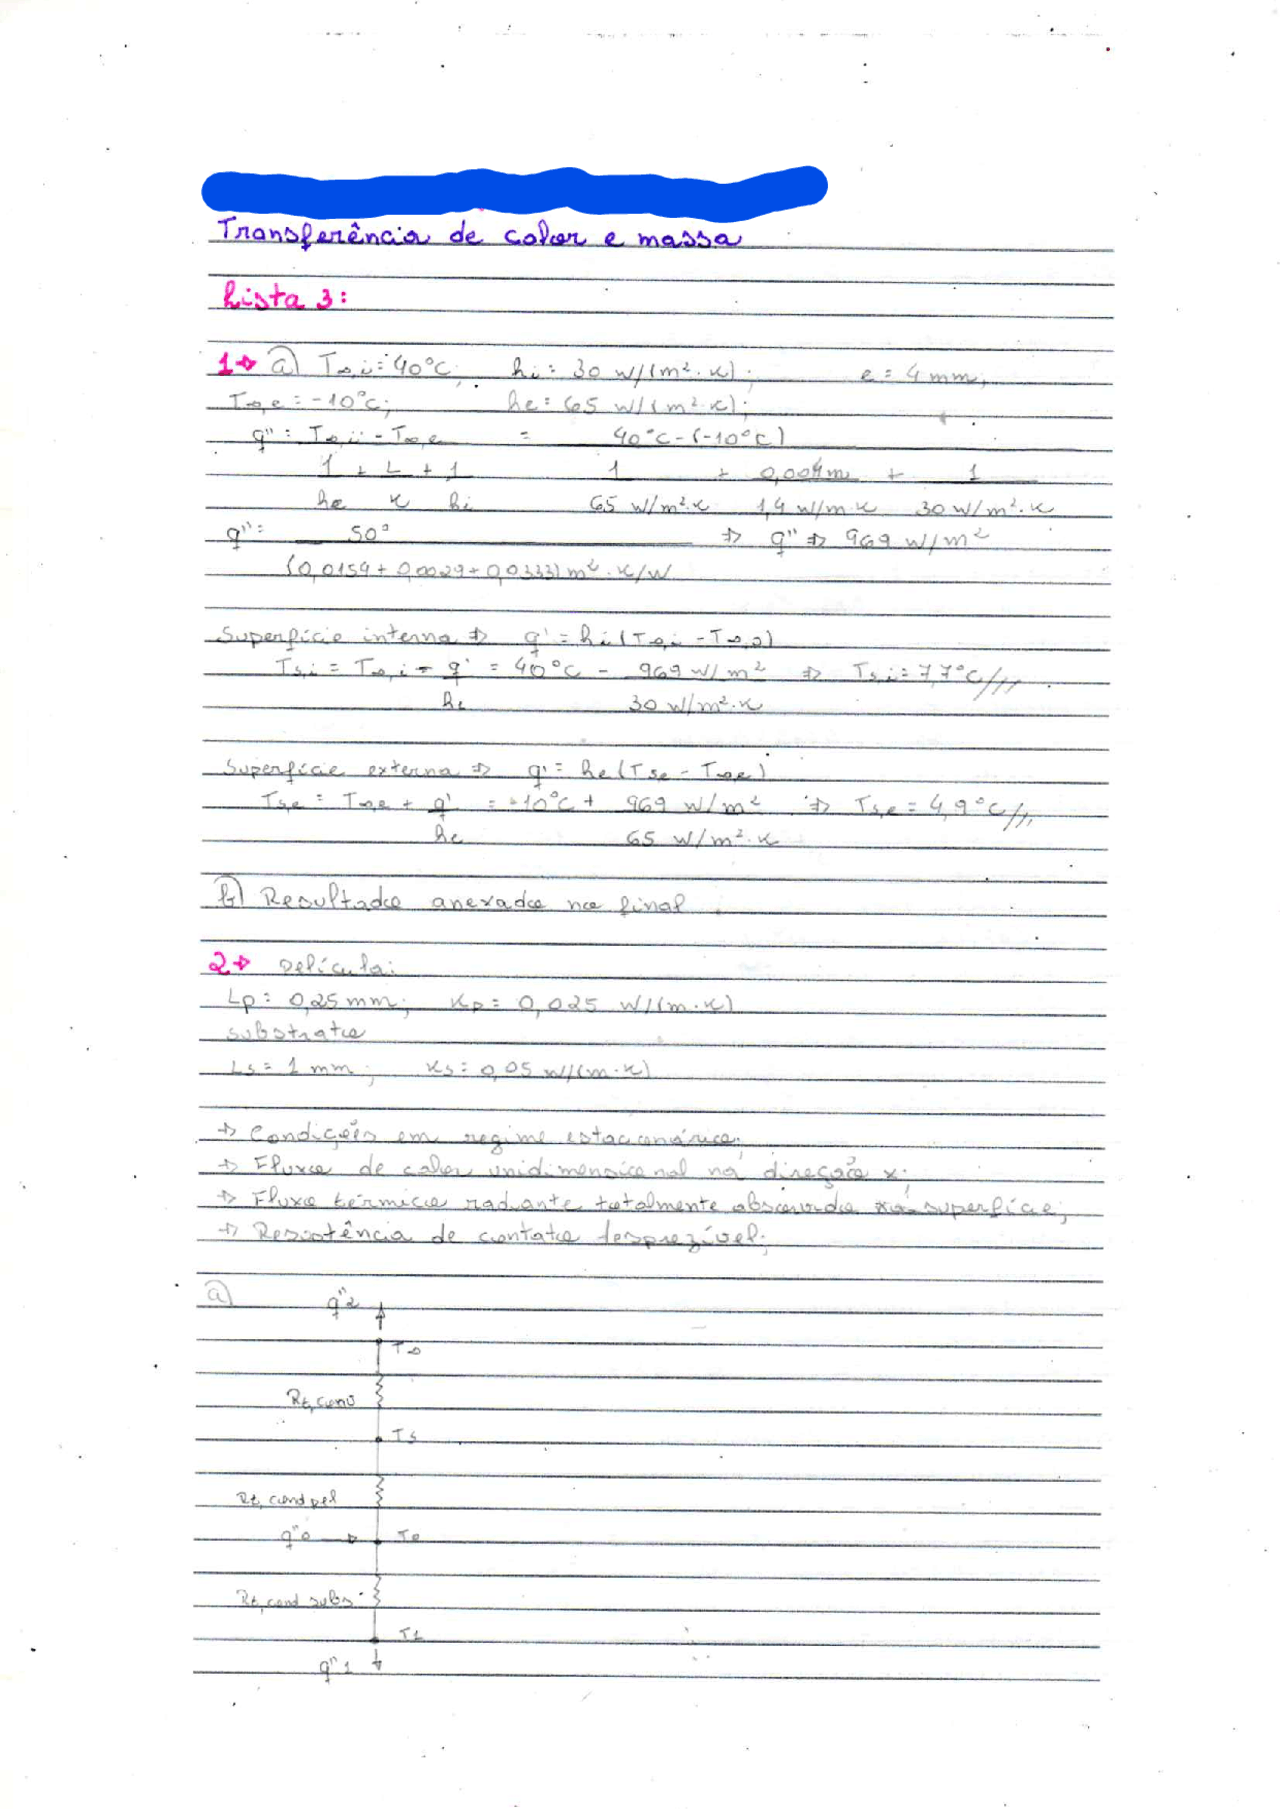 Transferência de calor e massa
Lista 3:
1→ a) T∞,i = 40°C; hi = 30 W/(m²·K); e = 4 mm;
T∞,e = -10°C; he = 65 W/(m²·K);
q" = T∞,i - T∞,e = 40°C - (-10°C)
1 + L + 1 1 + 0,004m + 1
he K hi 65 W/m²·K 1,4 W/m·K 30 W/m²·K
q" = 50° ⇒ q" ⇒ 969 W/m²
(0,0154 + 0,0029 + 0,0333) m²·K/W
Superfície interna ⇒ q' = hi (T∞,i - T∞,o)
Ts,i = T∞,i - q' = 40°C - 969 W/m² ⇒ Ts,i = 7,7°C//
hi 30 W/m²·K
Superfície externa ⇒ q' = he (Tse - T∞e)
Ts,e = T∞,e + q' = -10°C + 969 W/m² ⇒ Ts,e = 4,9°C//
he 65 W/m²·K
b) Resultado anexado no final
2→ Película:
Lp = 0,25 mm; Kp = 0,025 W/(m·K)
substrato
Ls = 1 mm; Ks = 0,05 W/(m·K)
→ Condições em regime estacionário;
→ Fluxo de calor unidimensional na direção x;
→ Fluxo térmico radiante totalmente absorvido superfície;
→ Resistência de contato desprezível;
a)
q"2
T∞
Rt,conv
Ts
Rt,cond pel
q"o → To
Rt,cond subs
T1
q"1